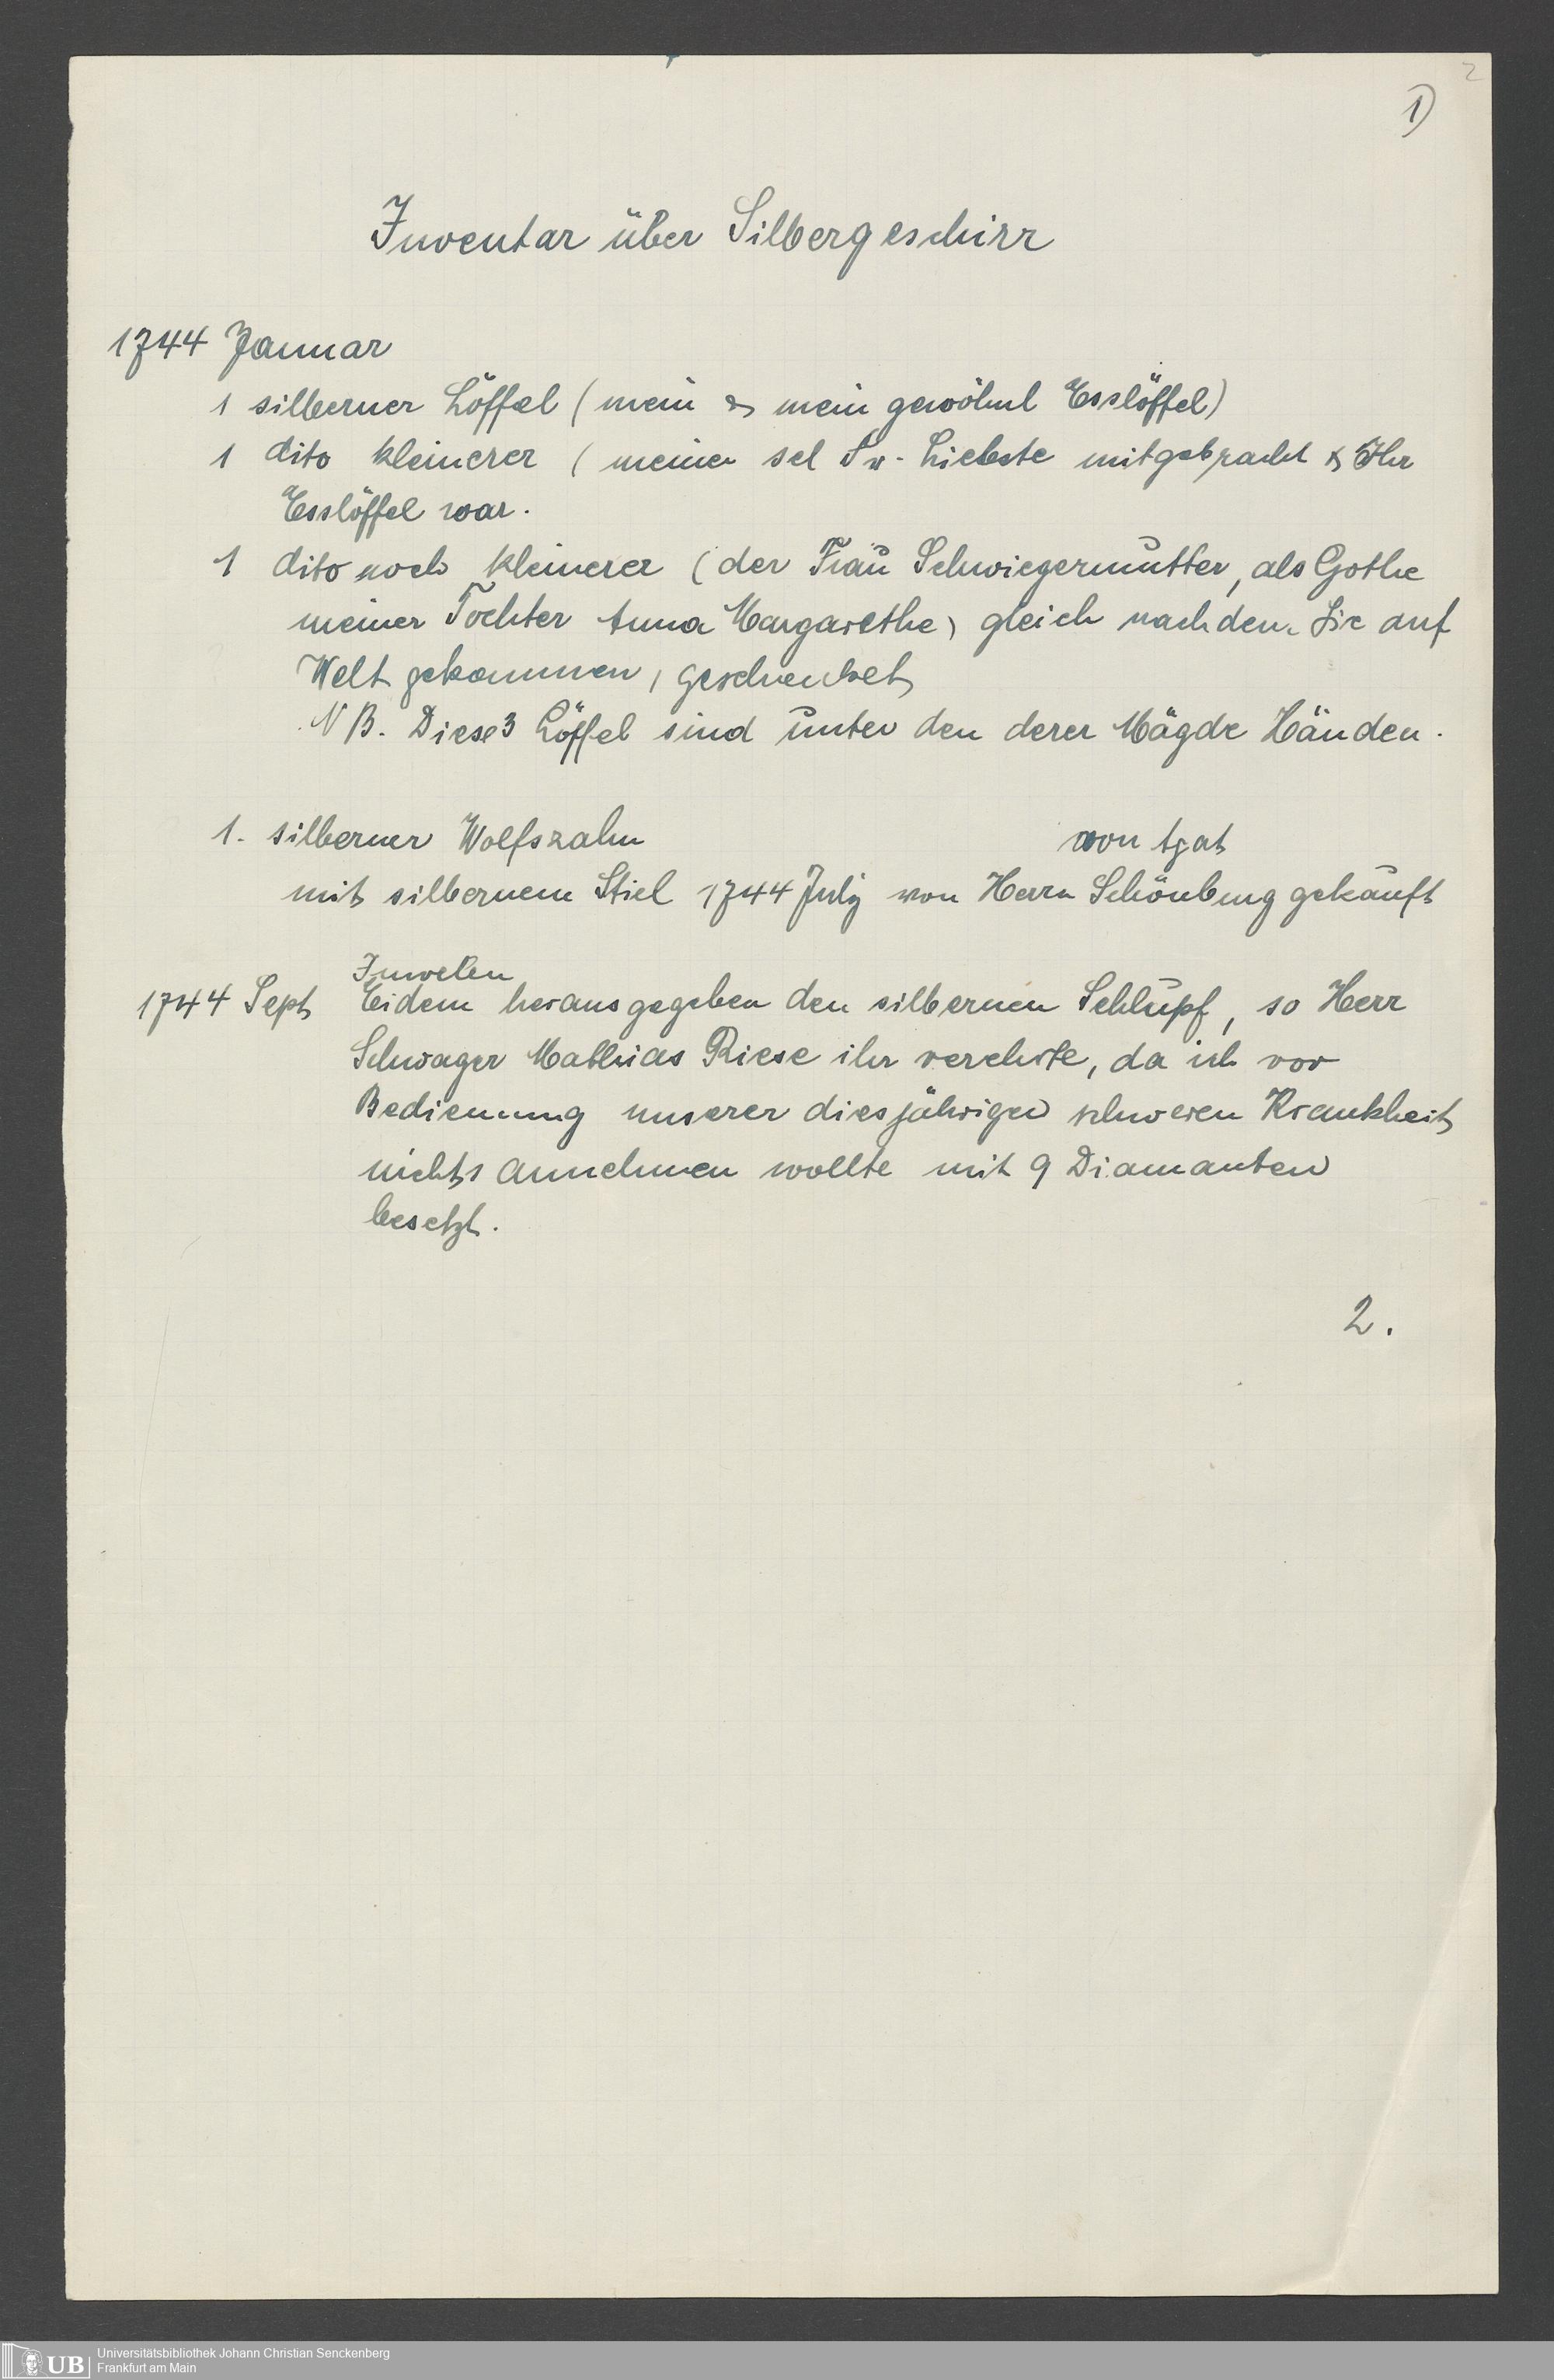 2
1)
Inventar über Silbergeschirr
1744 Januar
1 silberner Löffel (mein & mein gewöhnl Esslöffel)
1 dito kleinerer (meine sel Fr. Liebste mitgebracht & Ihr
Esslöffel war.
1 dito noch kleinerer (der Frau Schwiegermutter, als Gothe
meiner Tochter Anna Margarethe, gleich nachdem Sie auf
Welt gekommen, geschenket
NB. Diese 3 Löffel sind unter den derer Mägde Händen.
1. silberner Wolfszahn von Agat
mit silbernem Stiel 1744 July von Herrn Schönburg gekauft
Juwelen
1744 Sept Eidem herausgegeben den silbernen Schlupf, so Herr
Schwager Mathias Riese ihr verehrte, da ich vor
Bedienung unserer diesjährigen schweren Krankheit
nichts annehmen wollte mit 9 Diamanten
besetzt.
2.
UB
Universitätsbibliothek Johann Christian Senckenberg
Frankfurt am Main